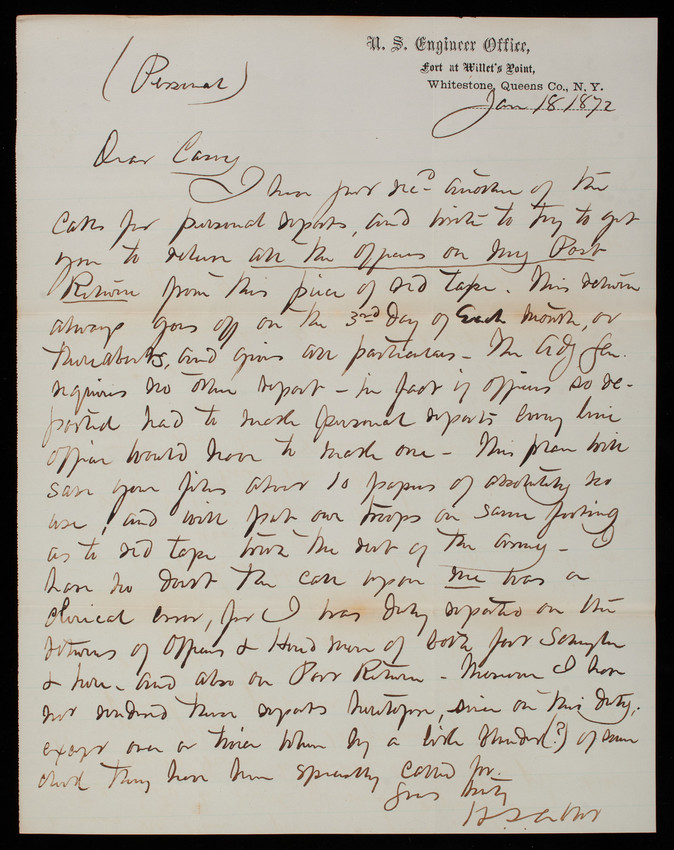 U. S. Engineer Office,
Fort at Willet's Point,
Whitestone, Queens Co., N. Y.
(Personal)
Jan 18 1872
Dear Casey
I have just rec'd another of the
calls for personal reports, and write to try to get
you to relieve all the officers on my Post
Return from this piece of red tape. This return
always goes off on the 3rd day of Each month, or
thereabouts, and gives all particulars - The Adj Gen.
requires no other report - in fact if officers so re-
ported had to make personal reports every line
officer would have to make one - This plan will
save your files about 10 papers of absolutely no
use, and will put our troops on same footing
as to red tape with the rest of the army - I
have no doubt the call upon me was a
clerical error, for I was duly reported on the
returns of Officers & Hired men of both for
& here - and also on Post Return - Moreover I have
not rendered these reports heretofore, since on this duty,
except once or twice when by a little blunder (?) of some
clerk they have been specially called for.
Yours truly
H. L. Abbot